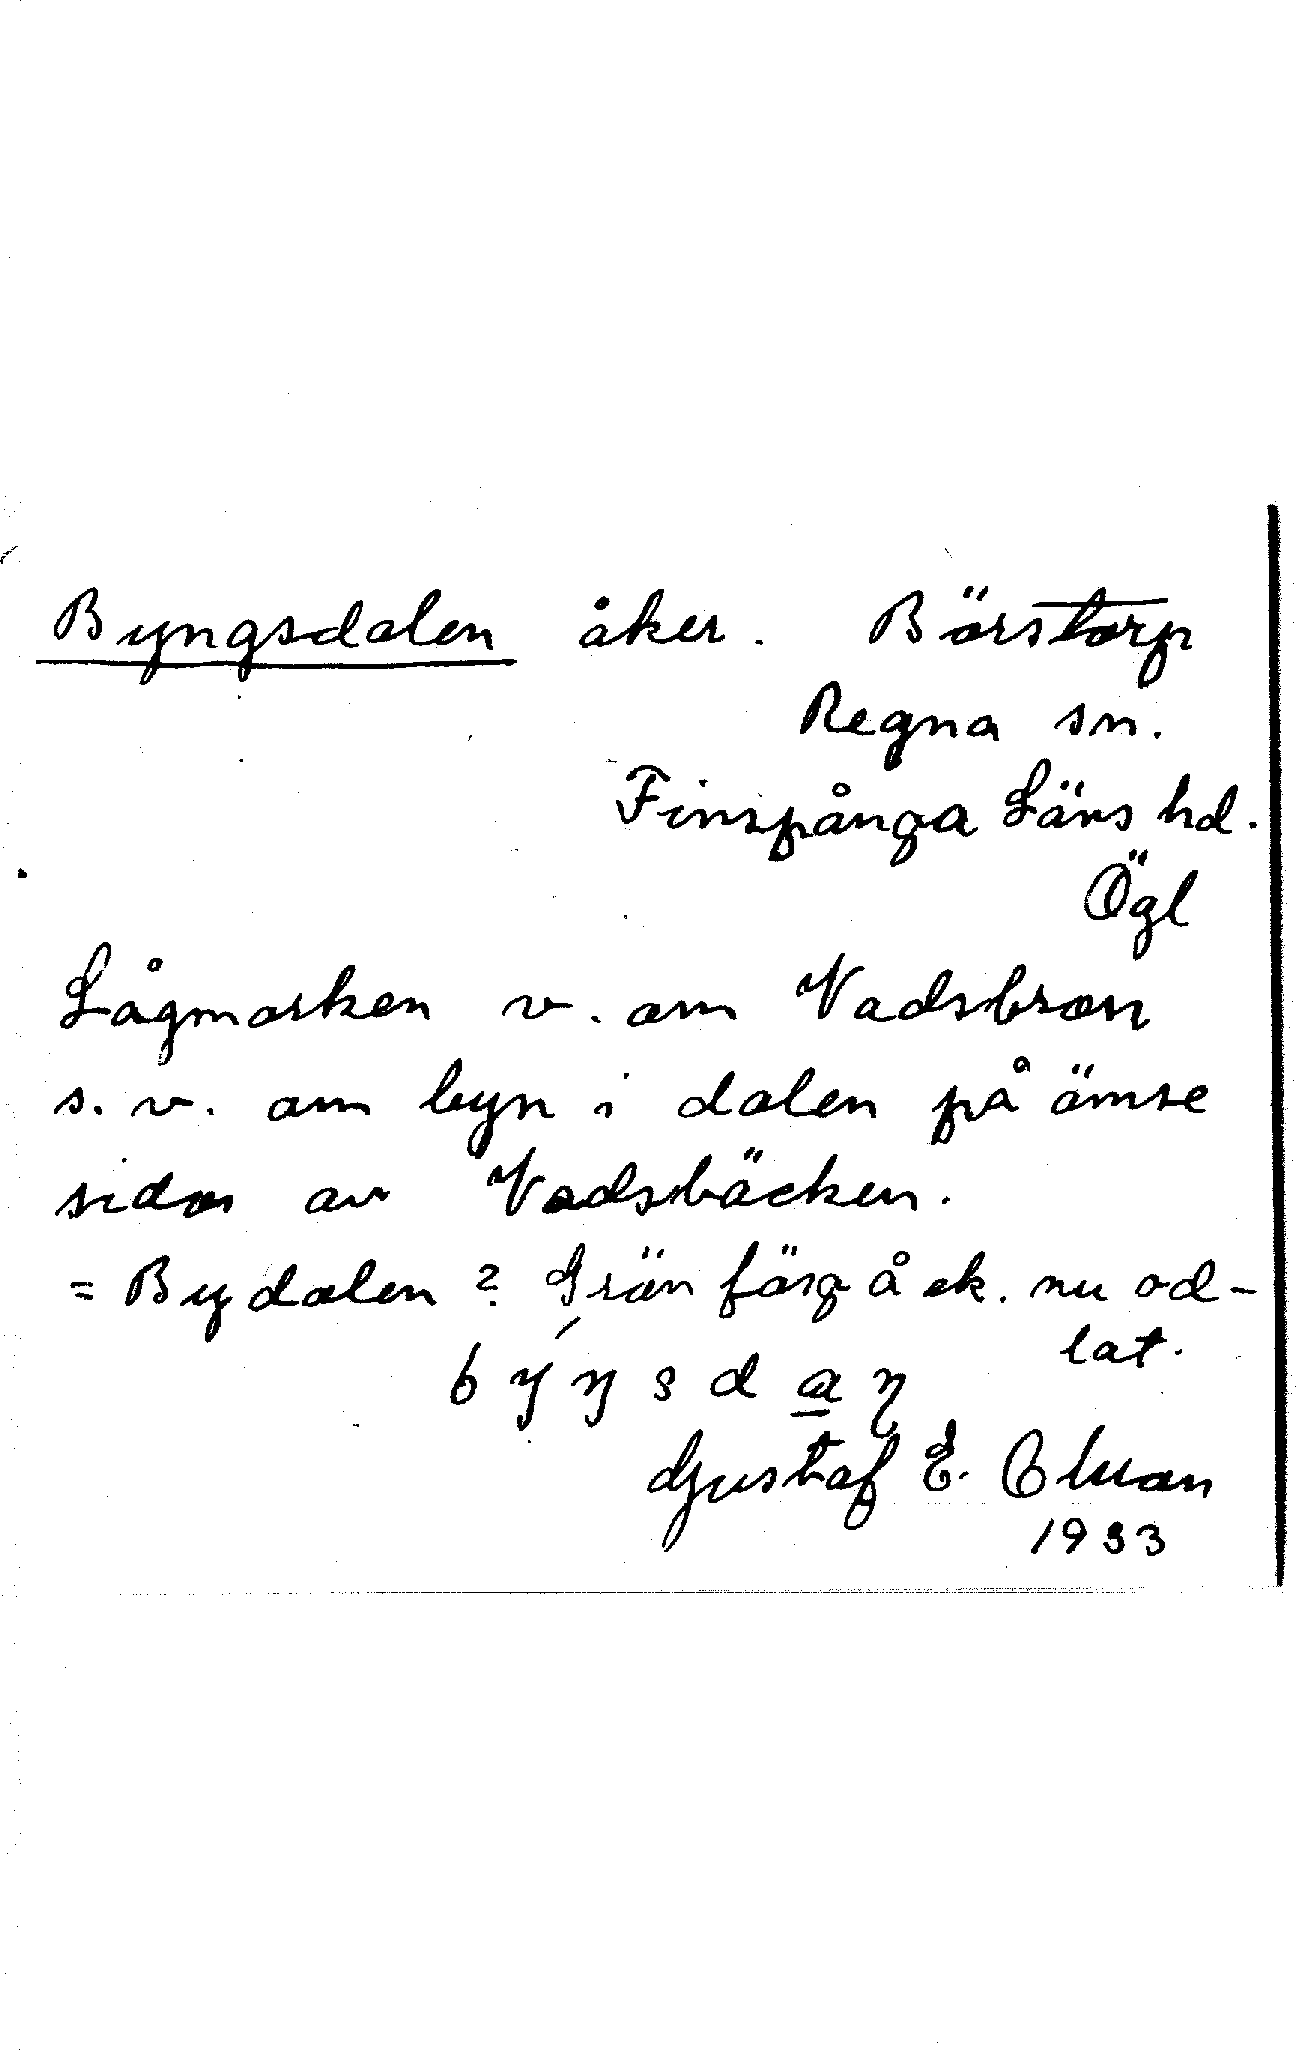 Byngsdalen åker. Börstorp
Regna sn.
Finspånga Läns hd.
Ögl
Lågmarken v. om Vadsbron
s. v. om byn i dalen på ömse
sidor av Vadsbäcken.
= Bydalen? Grön färg å ek. nu od-
lat.
býŋsdaņ
Gustaf E.
1933